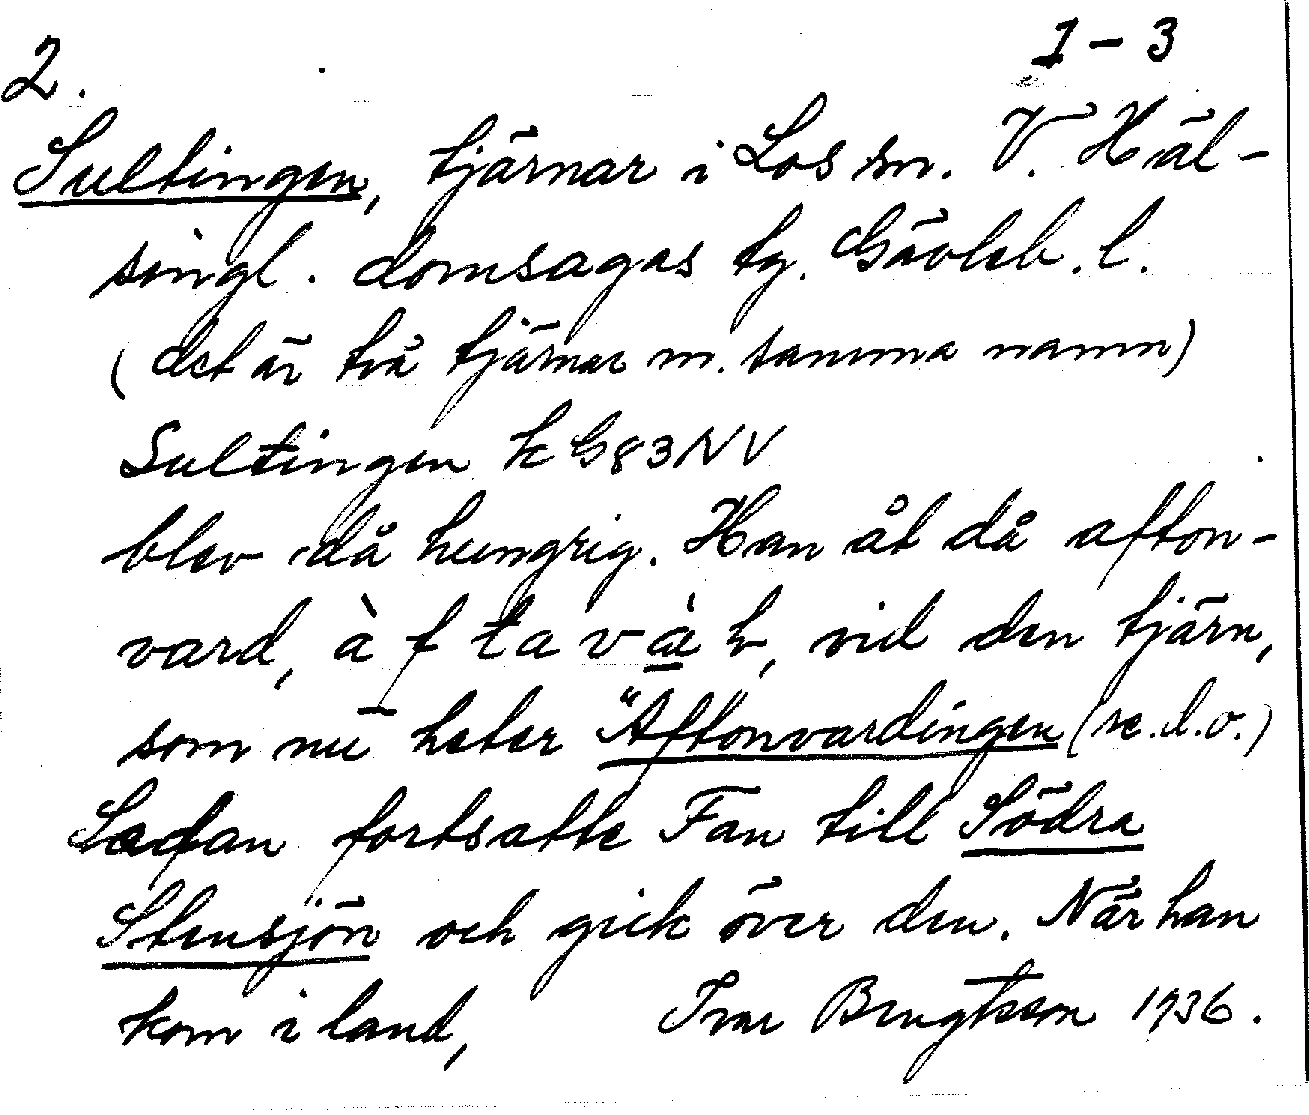 2. 1-3
Sultingen, tjärnar i Los sn. V. Häl-
singl. domsagas tg. Gävleb. l.
(det är två tjärnar m. samma namn)
Sultingen k G83NV
blev då hungrig. Han åt då afton-
vard, vid den tjärn,
som nu heter "Aftonvardingen (se.d.o.)
Sedan fortsatte Fan till Södra
Stensjön och gick över den. När han
kom i land, Ivar Bengtsson 1936.